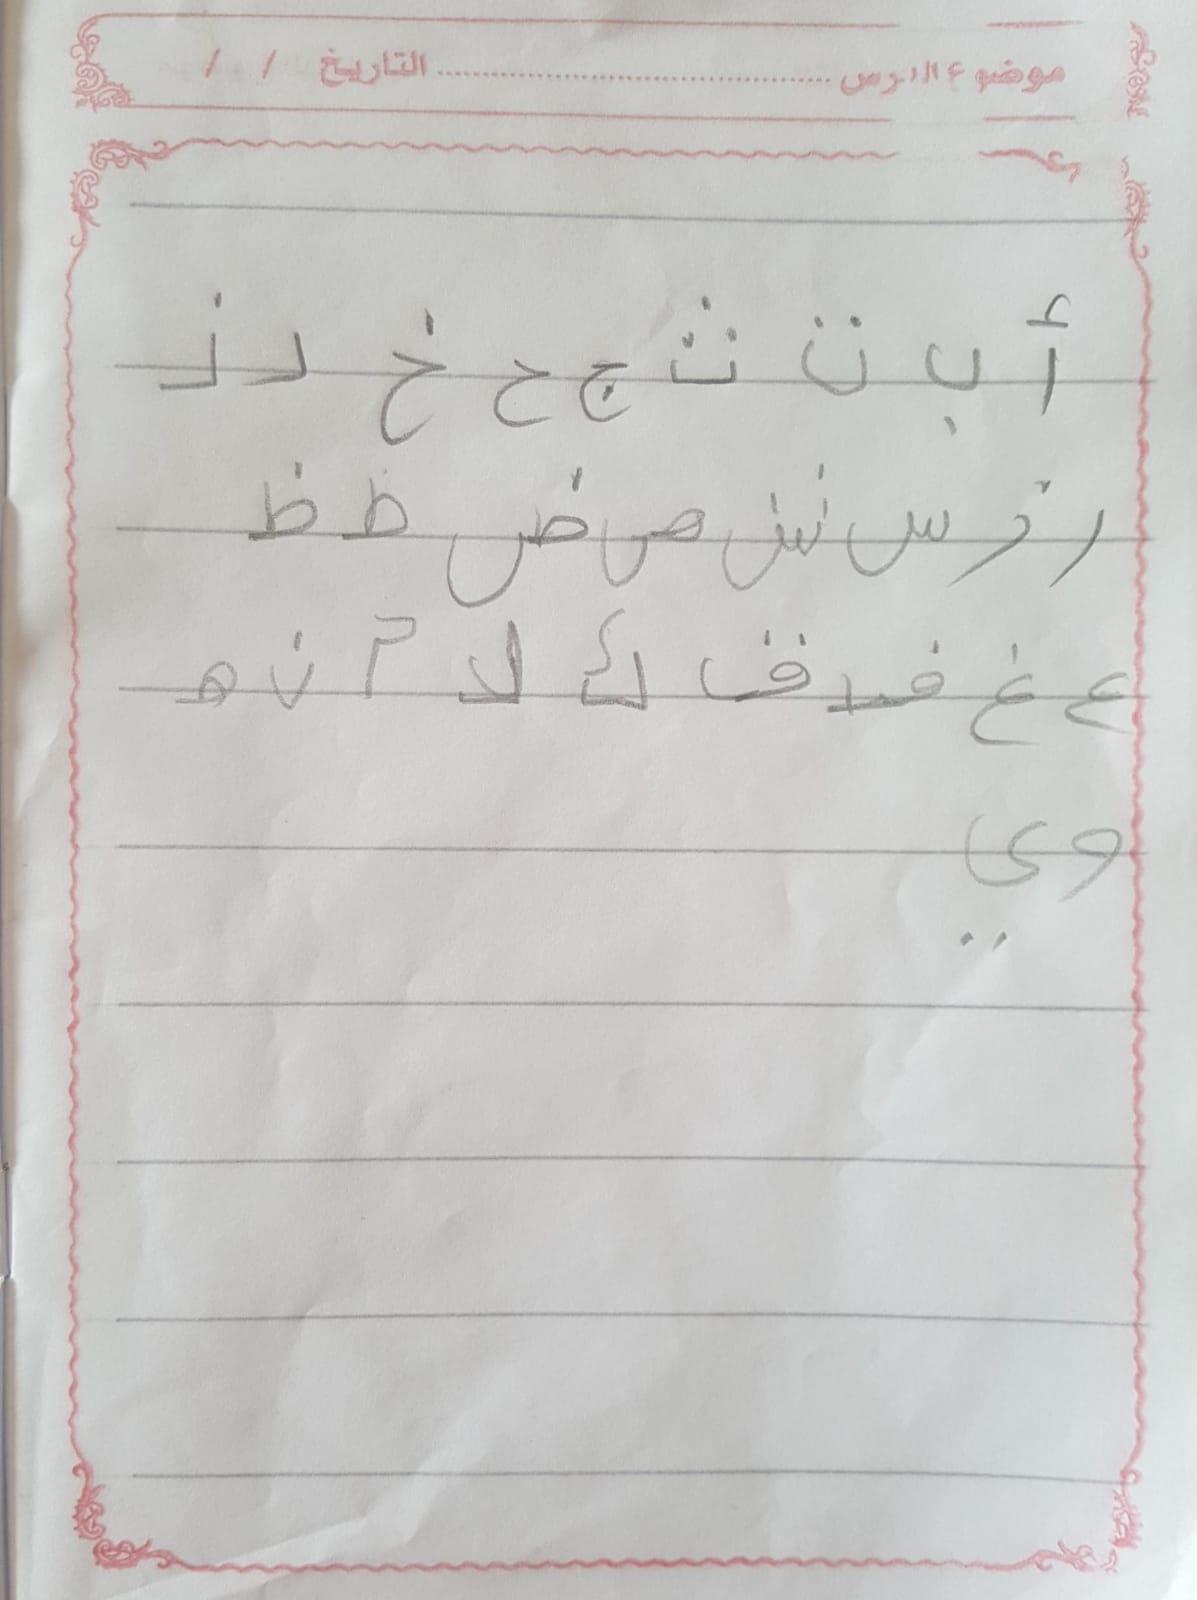 موضوع الدرس ........................ التاريخ / /
أ ب ت ث ج ح خ د ذ
ر ز س ش ص ض ط ظ
ع غ ف ق ك ل م ن ه
و ي